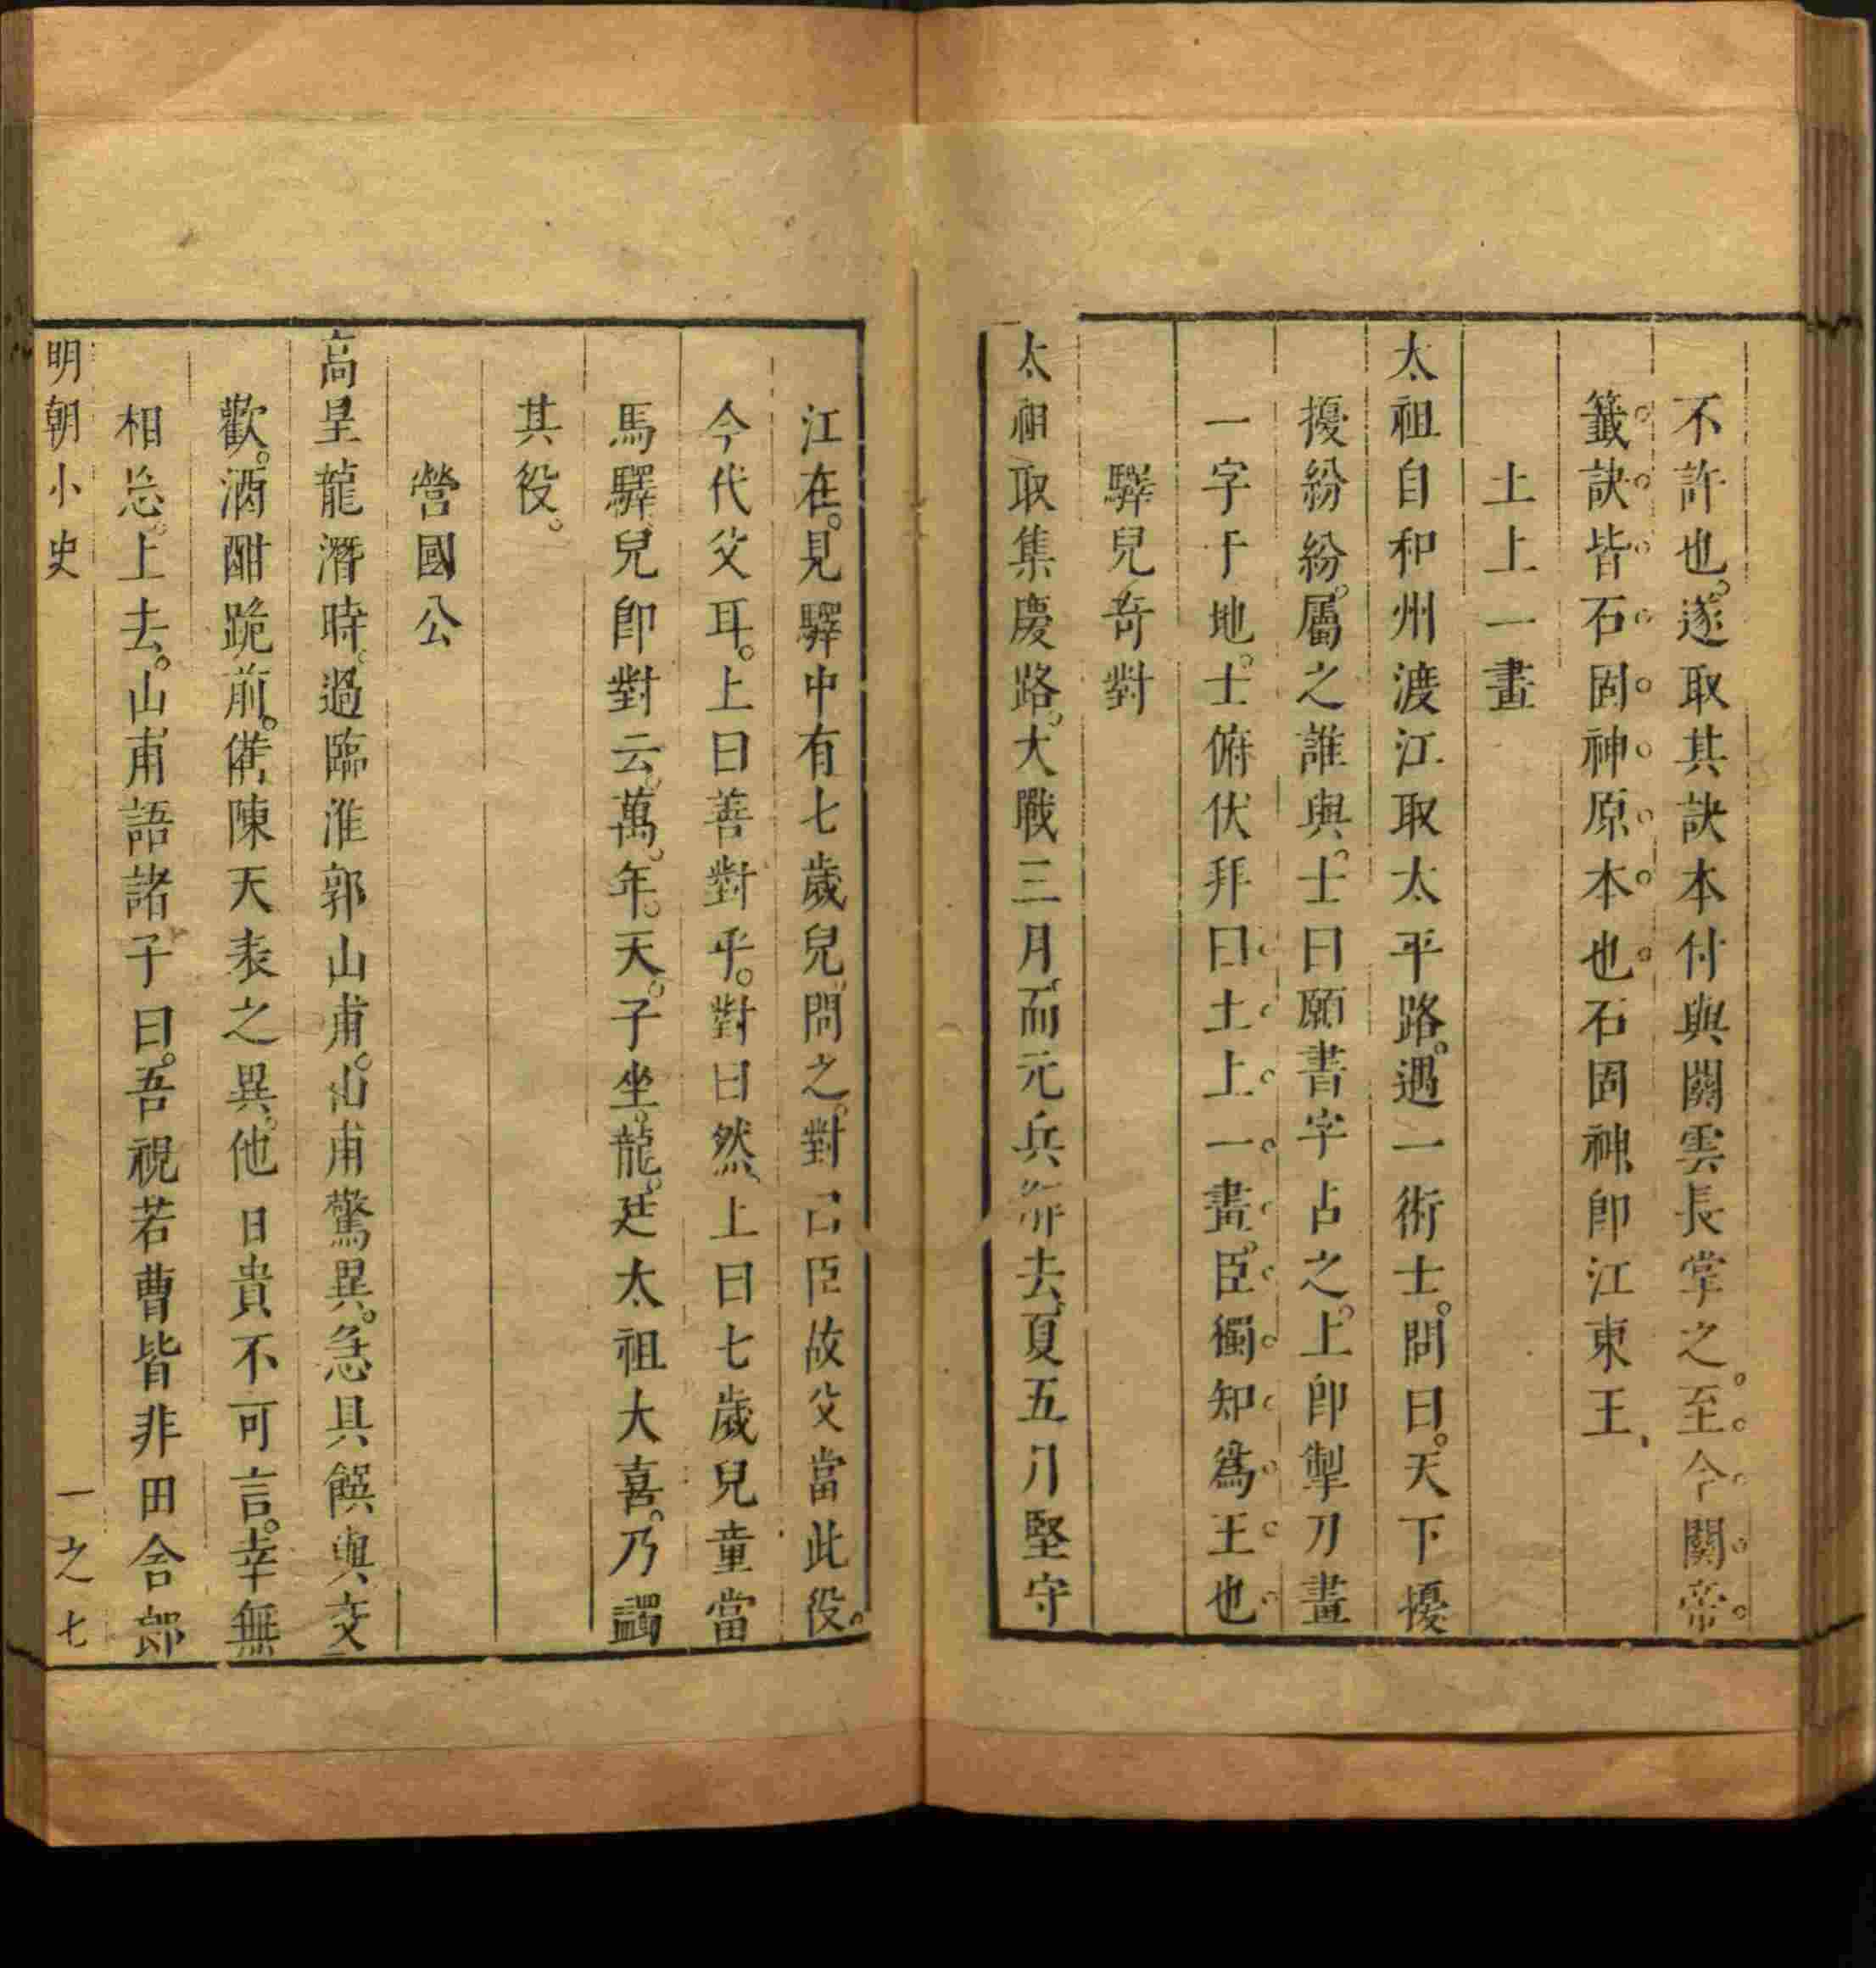 不許也遂取其訣本付與關雲長掌之至今關帝
籤訣皆石固神原本也石固神即江東王
土上一畫
太祖自和州渡江取太平路遇一術士問曰天下擾
擾紛紛屬之誰與士曰願書字占之上即掣刀畫
一字于地士俯伏拜曰土上一畫臣獨知爲王也
驛兒奇對
太祖取集慶路大戰三月而元兵 去夏五月堅守
江在見驛中有七歲兒問之對曰臣故父當此役
今代父耳上曰善對乎對曰然上曰七歲兒童當
馬驛兒即對云萬年天子坐龍廷太祖大喜乃蠲
其役
營國公
高皇龍潛時過臨淮郭山甫山甫驚異急具饌與交
歡酒酣跪前備陳天表之異他日貴不可言幸無
相忘上去山甫語諸子曰吾視若曹皆非田舍郎
明朝小史 一之七